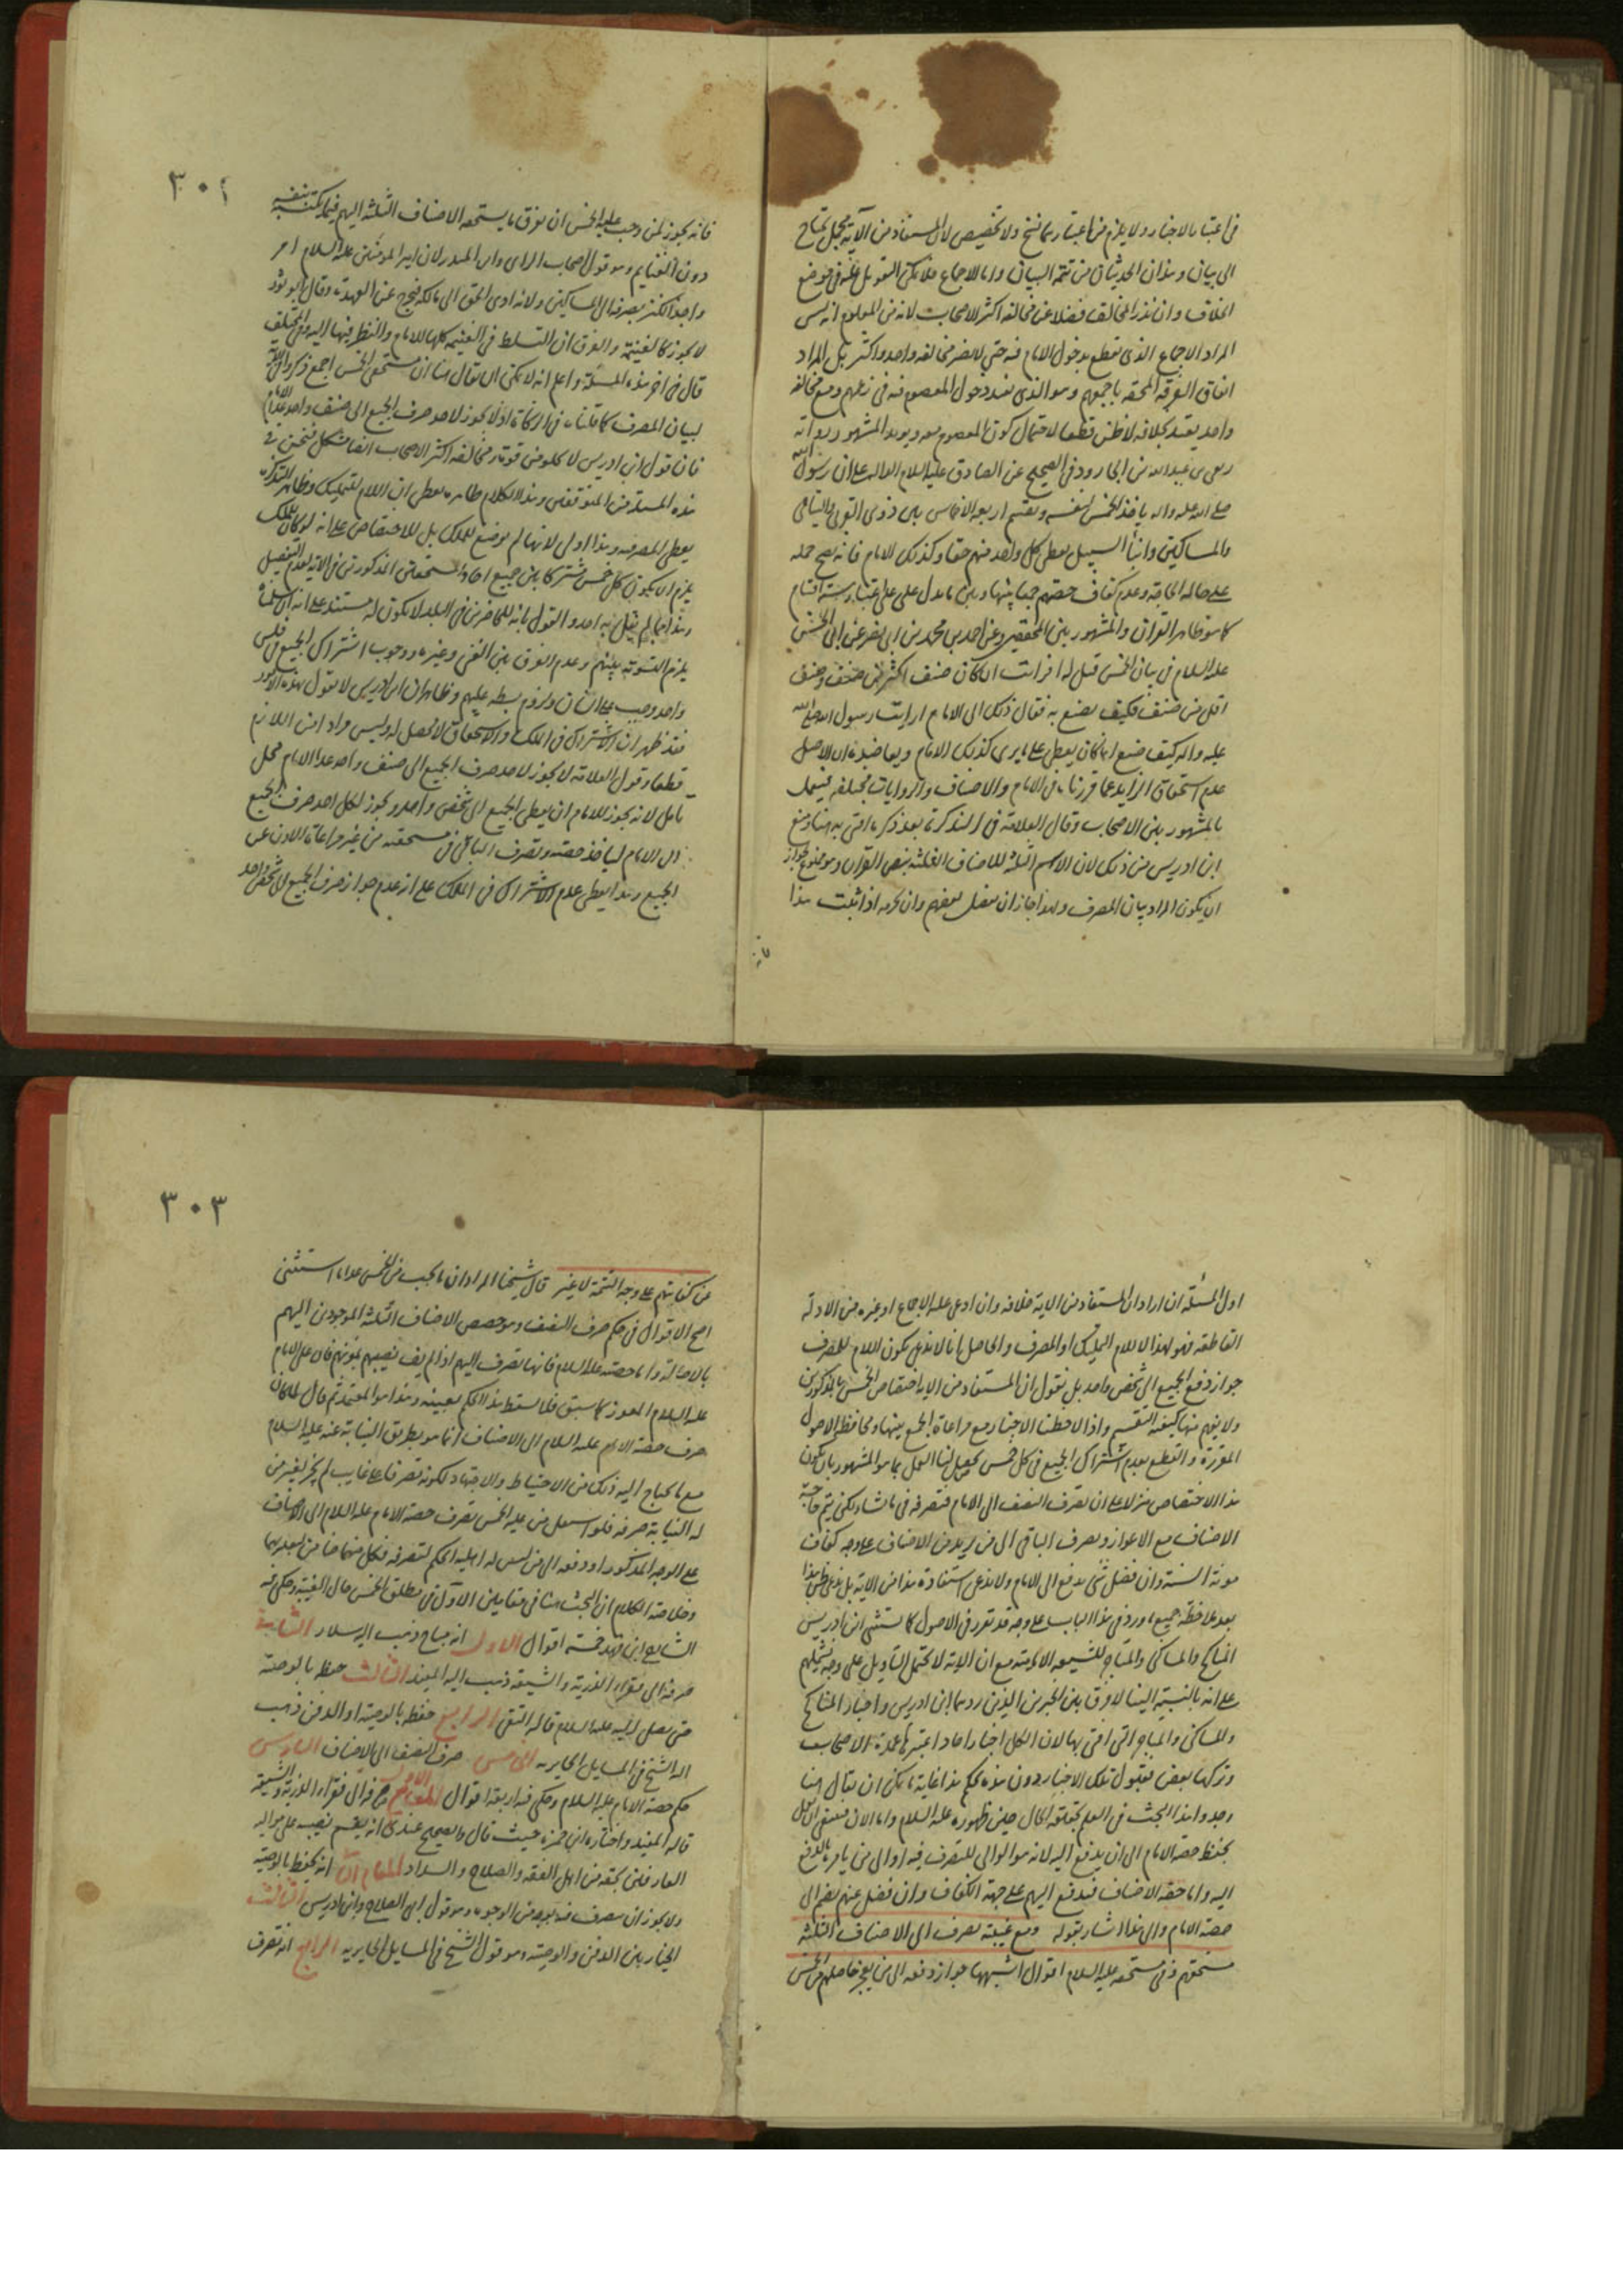 فى اعتبار الاخبار ولا يلزم من اعتبارهما نسخ ولا تخصيص لان المستفاد من الآية مجمل يحتاج
الى بيان وهذان الحديثان من تتمة البيان واما الاجماع فلا يمكن التعويل عليه فى موضع
الخلاف وان ندر المخالف فضلا عن مخالفة اكثر الاصحاب لانه من المعلوم انه ليس
المراد الاجماع الذى نقطع بدخول الامام فيه حتى لا يضر مخالفة واحد واكثر بل المراد
اتفاق الفرقة المحقة باجمعهم وهو الذى يفيد دخول المعصوم فيه فى زعمهم ومع مخالفة
واحد يعتد بخلافه لا ظن قطعا لاحتمال كون المعصوم معه ويؤيد المشهور رواية
ربعى بن عبدالله بن الجارود فى الصحيح عن الصادق عليه السلام الدالة على ان رسول الله
صلى الله عليه واله ياخذ الخمس لنفسه ويقسم اربعة الاخماس بين ذوى القربى واليتامى
والمساكين وابناء السبيل يعطى كل واحد منهم حقا وكذلك الامام فانه يصح حمله
على حالة الحاجة وعدم كفاف حصتهم جمعا بينها وبين ما يدل على اعتبار ستة اقسام
كما هو ظاهر القران والمشهور بين المحققين وعن احمد بن محمد بن ابى نصر عن ابى الحسن
عليه السلام فى بيان الخمس قيل له افرايت ان كان صنف اكثر من صنف وصنف
اقل من صنف فكيف يصنع به فقال ذلك الى الامام ارايت رسول الله صلى الله
عليه واله كيف صنع انما كان يعطى على ما يرى كذلك الامام ويعاضده ان الاصل
عدم استحقاق الزايد عما قررناه فى الامام والاصناف والروايات مختلفة فيعمل
بالمشهور بين الاصحاب وقال العلامة فى التذكرة بعد ذكر ما افتى به هنا ومنع
ابن ادريس من ذلك لان الاسهم الثلثة للاصناف الثلثة بنص القران وهو ممنوع لجواز
ان يكون المراد بيان المصرف ولهذا جاز ان يفضل بعضهم وان يحرمه اذا ثبت هذا
٣٠٢
فانه يجوز لمن وجب عليه الخمس ان يفرق ما يستحقه الاصناف الثلثة اليهم فيما يكتسبه بنفسه
دون الغنايم وهو قول اصحاب الراى وابن المنذر لان امير المؤمنين عليه السلام امر
واجد الكنز بصرفه الى المساكين ولانه ادى الحق الى مالكه فيخرج عن العهدة وقال ابو ثور
لا يجوز كالغنيمة والفرق ان التسلط فى الغنيمة كلها للامام والنظر فيها اليه وفى المختلف
قال فى اخر هذه المسئلة واعلم انه لا يمكن ان يقال هنا ان مستحقى الخمس اجمع ذكروا فى الاية
لبيان المصرف كما قلناه فى الزكاة اذ لا يجوز لاحد صرف الجميع الى صنف واحد عدا الامام
فان قول ابن ادريس لا يخلو من قوة ومخالفة اكثر الاصحاب ايضا مشكل فنحن فى
هذه المسئلة من المتوقفين وهذا الكلام ظاهره يعطى ان اللام للتمليك وظاهر التذكرة
يعطى المصرف وهذا اولى لانها لم توضع للملك بل للاختصاص على انه لو كان للملك
يلزم ان يكون كل خمس مشتركا بين جميع احاد المستحقين المذكورين فى الاية لعدم التفصيل
وهذا مما لم يقل به احد والقول بانه للحاضرين فى البلد لا يكون له مستند على انه ان سلمناه
يلزم التسوية بينهم وعدم الفرق بين الغنى وغيره ووجوب اشتراك الجميع فى فلس
واحد وجب على انسان ولزوم بسطه عليهم وظاهر ان ابن ادريس لا يقول بهذه الامور
فقد ظهر ان الاشتراك فى الملك والاستحقاق لا محصل له وليس مراد امن اللازم
قطعا وقول العلامة لا يجوز لاحد صرف الجميع الى صنف واحد عدا الامام محل
تامل لانه يجوز للامام ان يعطى الجميع الى شخص واحد ويجوز لكل احد صرف الجميع
الى الامام لياخذ حصته ويصرف الباقى فى مستحقه من غير مراعاة الاذن عن
الجميع وهذا يعطى عدم الاشتراك فى الملك على ان عدم جواز صرف الجميع الى شخص واحد
اول المسئلة ان اراد ان المستفاد من الاية خلافه وان ادعى عليه الاجماع او غيره من الادلة
القاطعة فهو لهذا لا للام التمليك او المصرف والحاصل انا لا ندعى بكون اللام للمصرف
جواز دفع الجميع الى شخص واحد بل نقول ان المستفاد من الاية اختصاص الخمس بالمذكورين
ولا يفهم منها كيفية التقسيم واذا لاحظنا الاخبار مع مراعاة الجمع بينها ومحافظة الاصول
المقررة والقطع بعدم اشتراك الجميع فى كل خمس يحصل لنا العمل بما هو المشهور بان يكون
هذا الاختصاص منزلا على ان يصرف النصف الى الامام فيصرفه فى ما شاء لكن يتم حاجة
الاصناف مع الاعواز ويصرف الباقى الى من يريد من الاصناف على وجه كفاف
مؤنة السنة وان فضل شئ يدفع الى الامام ولا ندعى استفادة هذا من الاية بل ندعى ظن هذا
بعد ملاحظة جميع ما ورد فى هذا الباب على وجه قد تقرر فى الاصول كما يستثنى ابن ادريس
المناكح والمساكن والمتاجر للشيعة الامامية مع ان الاية لا تحتمل التاويل على وجه يشملهم
على انه بالنسبة الينا لا فرق بين الخبرين الذين ردهما ابن ادريس واخبار المناكح
والمساكن والمتاجر التى افتى بها لان الكل اخبار احاد اعتبرها عمدة الاصحاب
وتركها بعض فقبول تلك الاخبار دون هذه تحكم هذا غاية ما يمكن ان يقال هنا
وجدوا هذا البحث فى العلم بحقيقة الحال حين ظهوره عليه السلام واما الان فمقتضى الدليل
يحفظ حصة الامام الى ان يدفع اليه لانه هو الوالى للتصرف فيه او الى من يامر بالدفع
اليه واما حصة الاصناف فيدفع اليهم على جهة الكفاف وان فضل عنهم يضم الى
حصة الامام والى هذا اشار بقوله ومع غيبته يصرف الى الاصناف الثلثة
مستحقهم وفى مستحقه عليه السلام اقوال اشبهها جواز دفعه الى من يعجز حاصلهم من الخمس
٣٠٣
عن كفايتهم على وجه التتمة لا غير قال شيخنا المراد ان ما يجب من الخمس عدا ما استثنى
اصح الاقوال فى حكم صرف النصف وهو حصص الاصناف الثلثة الموجودين اليهم
بالاصالة واما حصته عليه السلام فانها تصرف اليهم اذا لم يف نصيبهم بمؤنتهم فان على الامام
عليه السلام المعوز كما سبق فلا يسقط هذا الحكم بغيبته وهذا هو المعتمد ثم قال لما كان
صرف حصة الامام عليه السلام الى الاصناف انما هو بطريق النيابة عنه عليه السلام
مع ما يحتاج اليه ذلك من الاحتياط والاجتهاد لكونه تصرفا على غايب لم يجز لغير من
له النيابة صرفه فلو استعمل من عليه الخمس بصرف حصة الامام عليه السلام الى الاصناف
على الوجه المذكور او دفعه الى من ليس له اهلية الحكم لتصرفه فكل منهما ضامن لتعديهما
وخلاصة الكلام ان البحث هنا فى مقامين الاول فى مطلق الخمس حال الغيبة وحكى فيه
الشارح ابن فهد خمسة اقوال الاول انه مباح ذهب اليه سلار الثانى
صرفه الى فقراء الذرية والشيعة ذهب اليه المفيد الثالث حفظه بالوصية
حتى يصل اليه عليه السلام قاله التقى الرابع حفظه بالوصية او الدفن ذهب
اليه الشيخ فى المسايل الحايرية الخامس صرف النصف الى الاصناف السادس
حكم حصة الامام عليه السلام وحكى فيه اربعة اقوال الاول صرفه الى فقراء الذرية والشيعة
قاله المفيد واختاره ابن حمزة حيث قال والصحيح عندى انه يقسم نصيبه على مواليه
العارفين بحقه من اهل الفقه والصلاح والسداد الثانى انه يحفظ بالوصية
ولا يجوز ان يصرف فيه بوجه من الوجوه وهو قول ابى الصلاح وابن ادريس الثالث
الخيار بين الدفن والوصية وهو قول الشيخ فى المسايل الحايرية الرابع انه تصرف